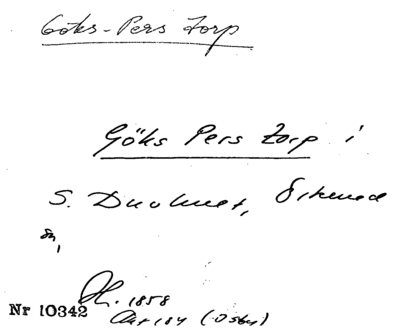 Göks-Pers Torp
Göks Pers Torp i
S. Duvhult, Örkened
sn,
Hf. 1858
Nr 10342 Akt 184 (Osby)